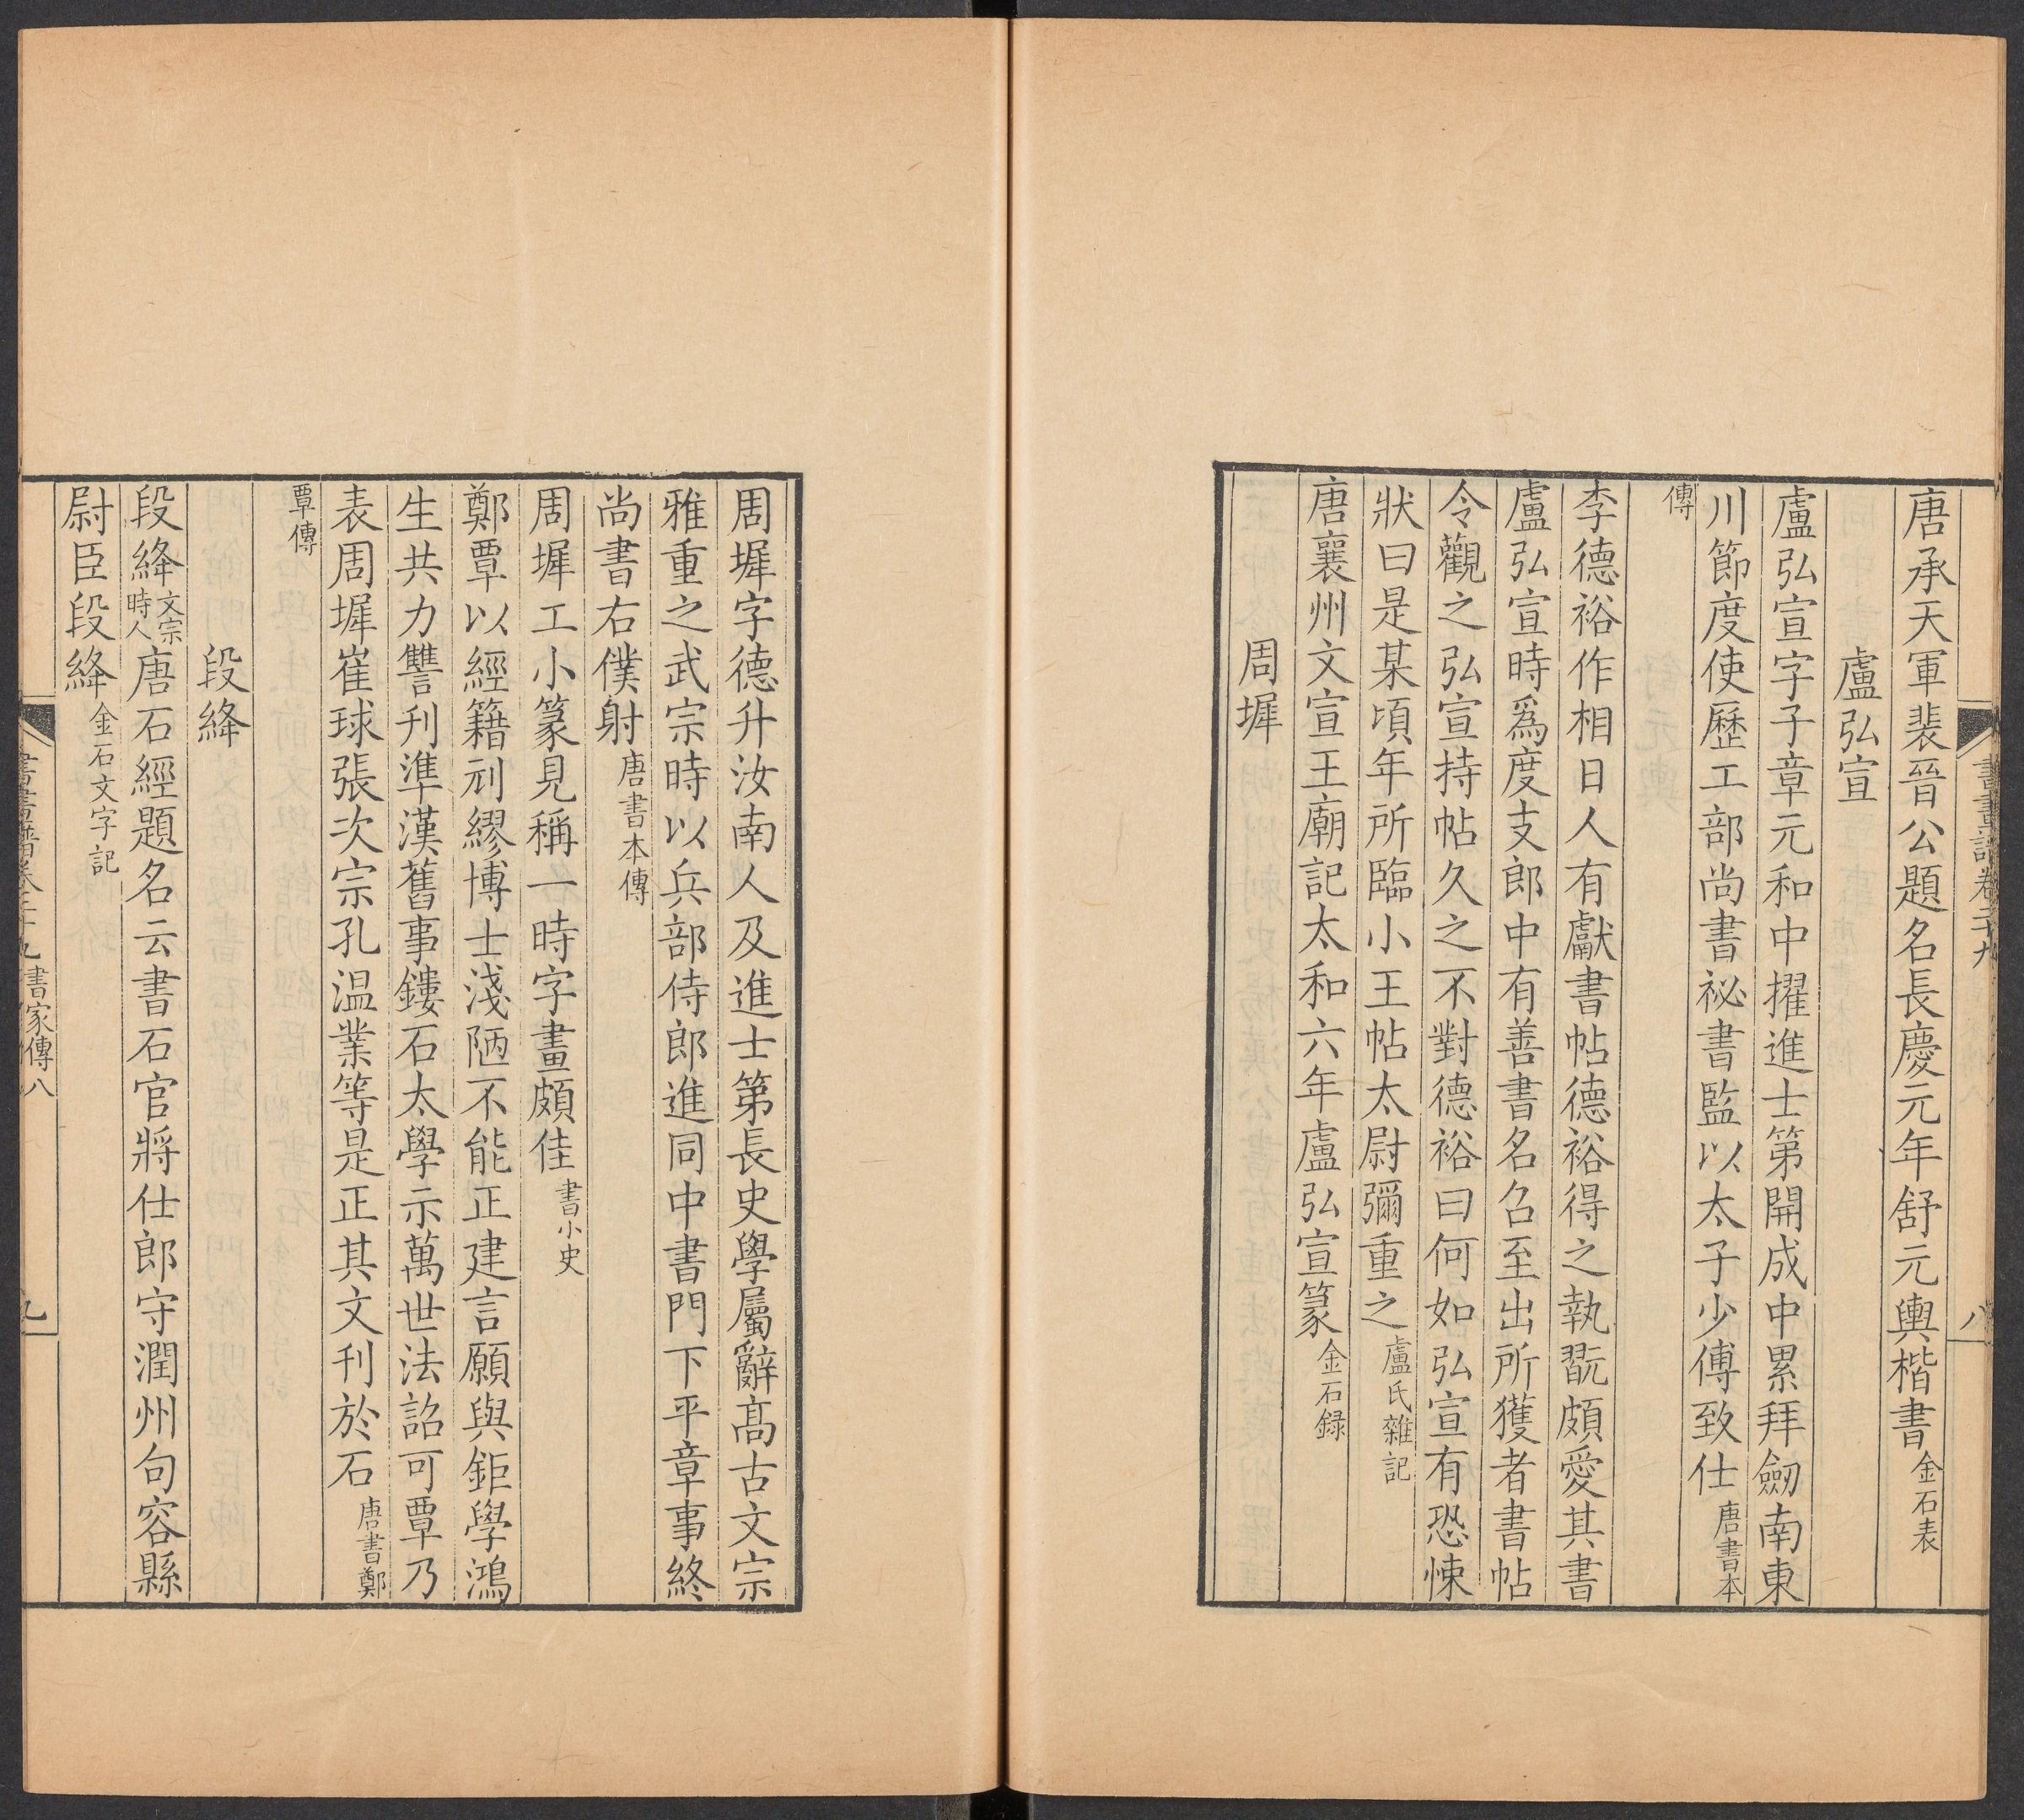 唐承天軍裴晉公題名長慶元年舒元輿楷書金石表
盧弘宣
盧弘宣字子章元和中擢進士第開成中累拜劒南東
川節度使歷工部尚書祕書監以太子少傅致仕唐書本
傳
李德裕作相日人有獻書帖德裕得之執翫頗愛其書
盧弘宣時爲度支郎中有善書名召至出所獲者書帖
令觀之弘宣持帖久之不對德裕曰何如弘宣有恐悚
狀曰是某頃年所臨小王帖太尉彌重之盧氏雜記
唐襄州文宣王廟記太和六年盧弘宣篆金石録
周墀
周墀字德升汝南人及進士第長史學屬辭髙古文宗
雅重之武宗時以兵部侍郎進同中書門下平章事終
尚書右僕射唐書本傳
周墀工小篆見稱一時字畫頗佳書小史
鄭覃以經籍刓繆博士淺陋不能正建言願與鉅學鴻
生共力讐刊準漢舊事鏤石太學示萬世法詔可覃乃
表周墀崔球張次宗孔温業等是正其文刊於石唐書鄭
覃傳
段絳
段絳文宗時人唐石經題名云書石官將仕郎守潤州句容縣
尉臣段絳金石文字記
書畫譜卷二十九書家傳八
九